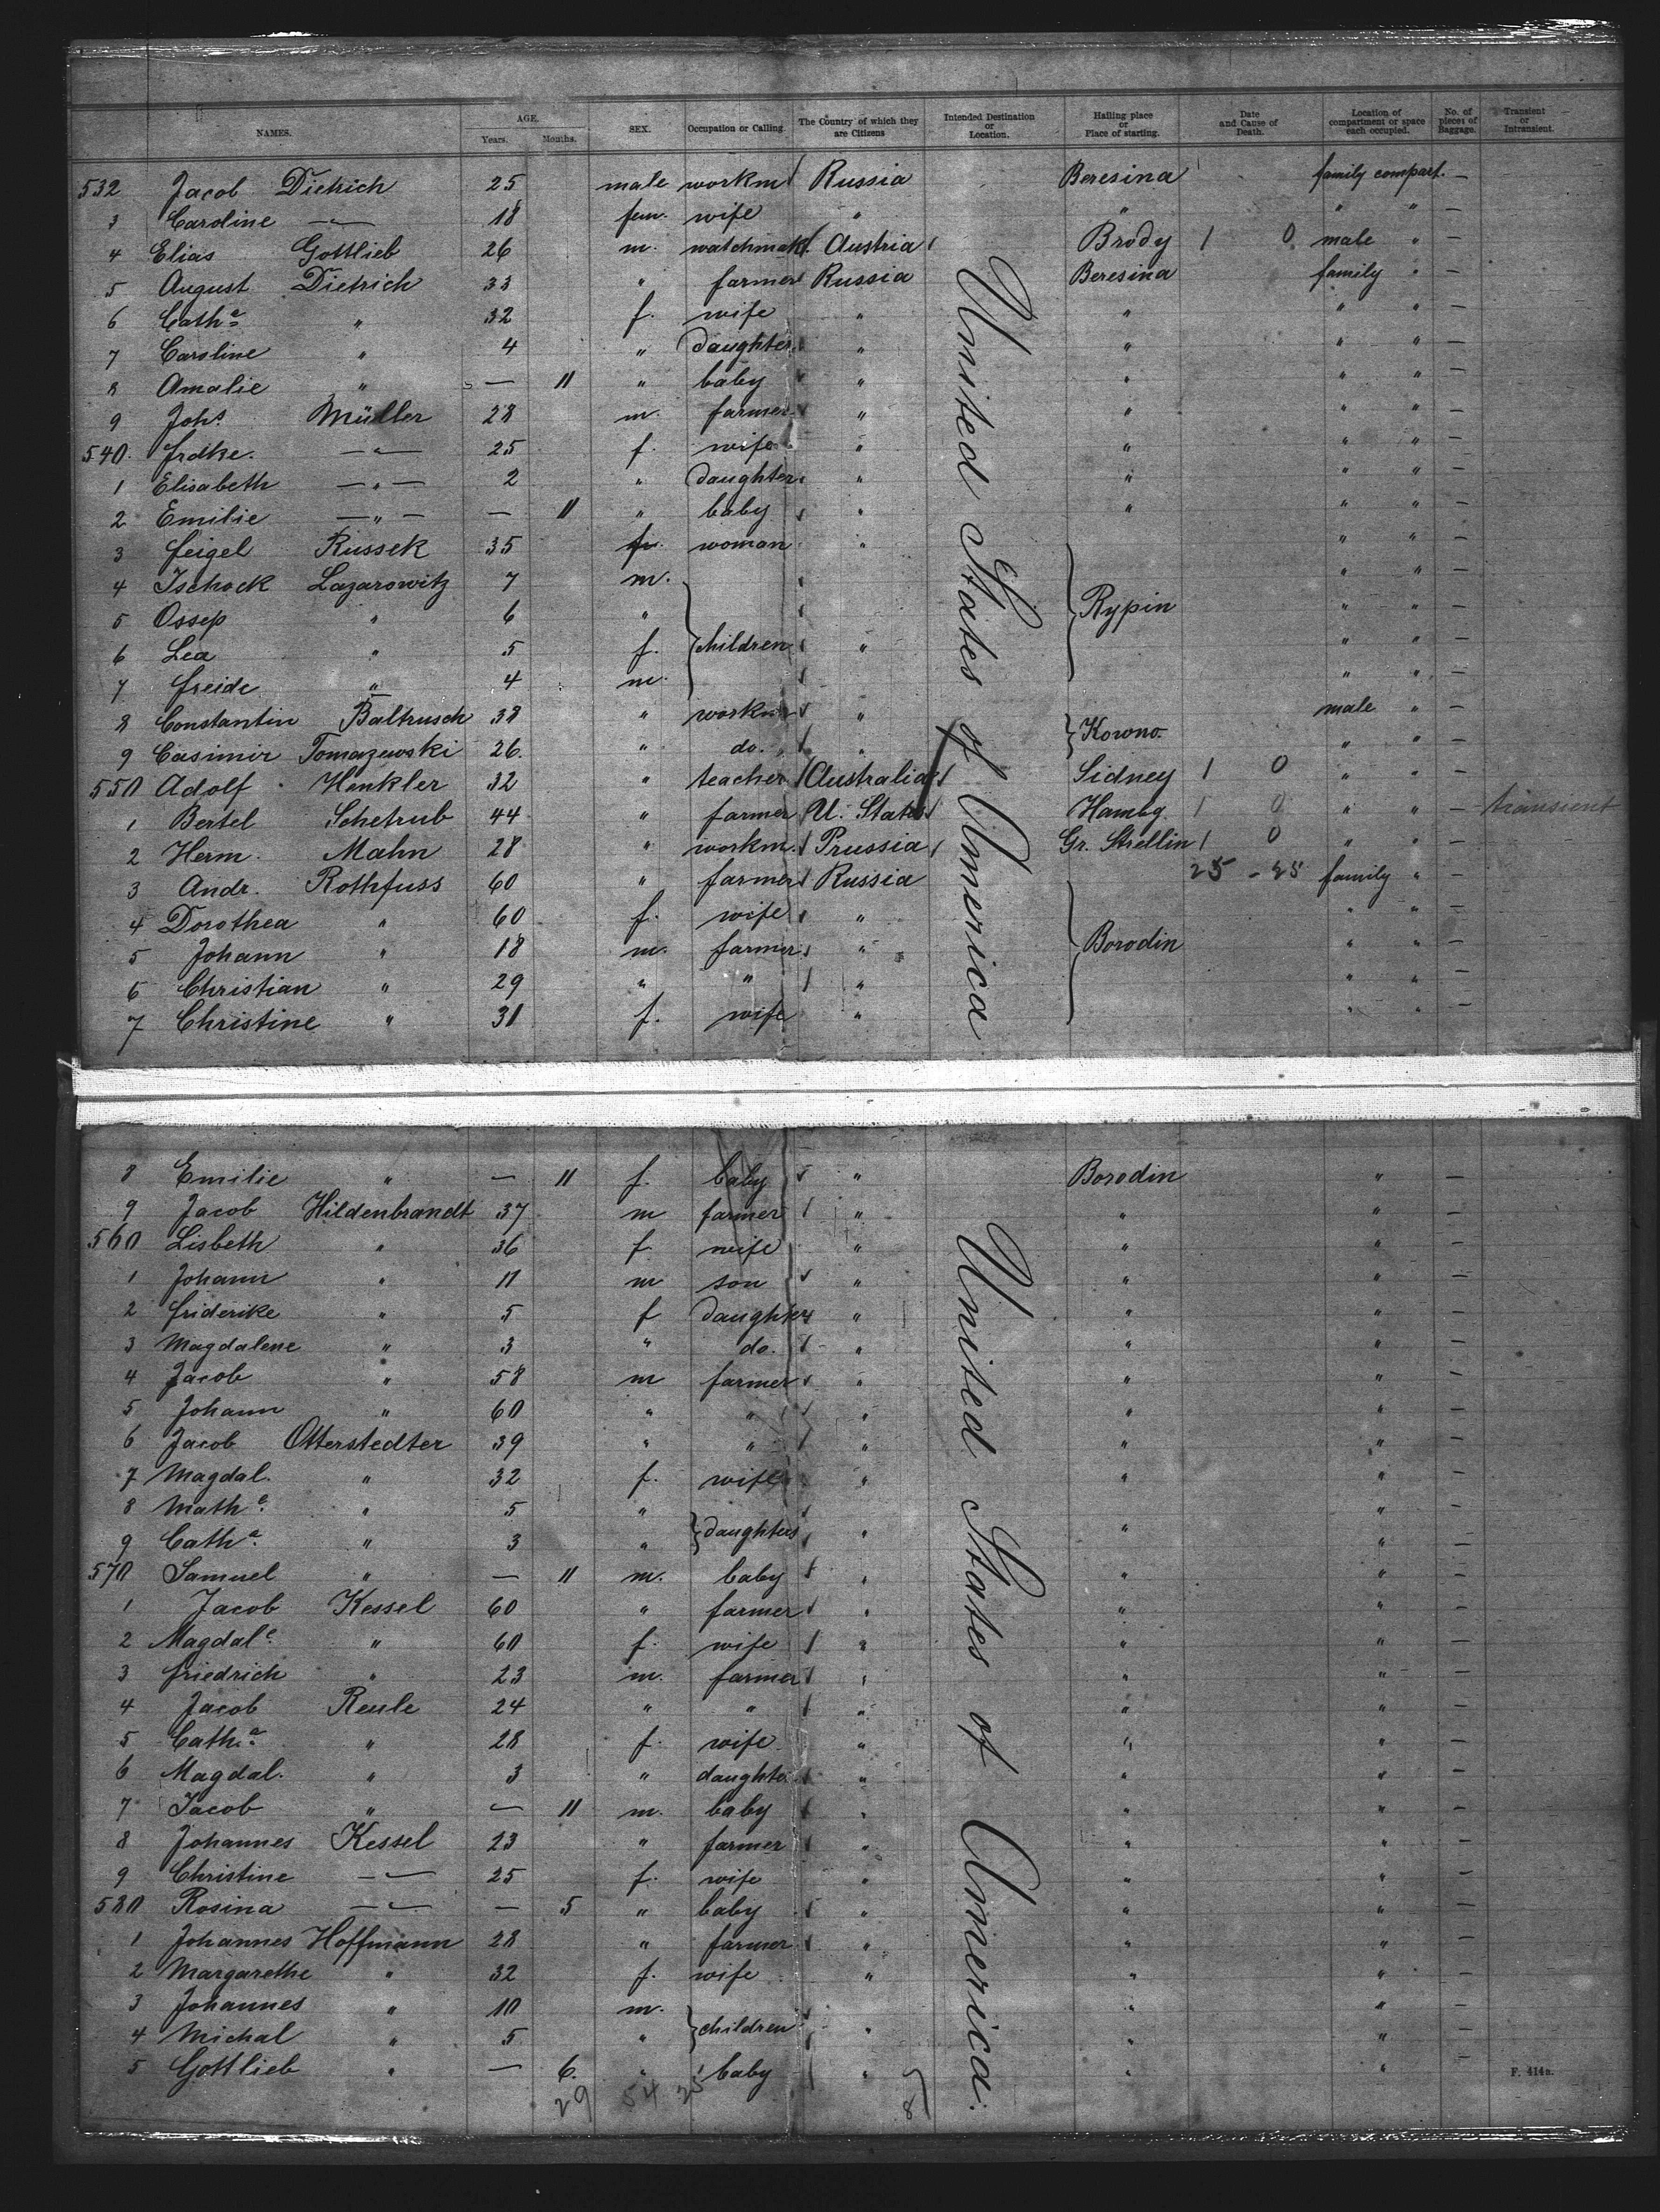 NAMES. AGE. Years. Months. SEX. Occupation or Calling. The Country of which they are Citizens Intended Destination or Location. Hailing place or Place of starting. Date and Cause of Death. Location of compartment or space each occupied. No. of pieces of Baggage. Transient or Intransient.
532 Jacob Dietrich 25 male workm Russia Beresina family compart. —
3 Caroline —"— 18 fem. wife " " " " —
4 Elias Gottlieb 26 m. watchmak Austria Brody 1 0 male " —
5 August Dietrich 33 " farmer Russia Beresina family " —
6 Catha " 32 f. wife " " " " —
7 Caroline " 4 " daughter " " " " —
8 Amalie " — 11 " baby " " " " —
9 Johs. Müller 28 m. farmer " " " " —
540. frdke. —"— 25 f. wife " " " " —
1 Elisabeth —"— 2 " daughter " " " " —
2 Emilie —"— — 11 " baby " " " " —
3 feigel Russek 35 fr. woman " " " —
4 Ischock Lazarowitz 7 m. " " —
5 Ossep " 6 " Rypin " " —
6 Lea " 5 f. children " " " —
7 freide " 4 m. " " —
8 Constantin Baltrusch 38 " workm " male " —
9 Casimir Tomazewski 26. " do. " Kowno. " " —
550 Adolf Henkler 32 " teacher Australia Sidney 1 0 " " —
1 Bertel Schetrub 44 " farmer U. States Hambg. 1 0 " " — transient
2 Herm. Mahn 28 " workm. Prussia Gr. Strellin 1 0 " " —
3 Andr. Rothfuss 60 " farmer Russia 25 - 25 family " —
4 Dorothea " 60 f. wife " " " —
5 Johann " 18 m. farmer " Borodin " " —
6 Christian " 29 " " " " " —
7 Christine " 31 f. wife " " " —
United States of America
8 Emilie " — 11 f. baby " Borodin " —
9 Jacob Hildenbrandt 37 m farmer " " " —
560 Lisbeth " 36 f. wife " " " —
1 Johann " 11 m son " " " —
2 friderike " 5 f daughter " " " —
3 Magdalene " 3 " do. " " " —
4 Jacob " 58 m farmer " " " —
5 Johann " 60 " " " " " —
6 Jacob Otterstedter 39 " " " " " —
7 Magdal. " 32 f. wife " " " —
8 Mathe. " 5 " " —
9 Catha. " 3 " daughters " " " —
570 Samuel " — 11 m. baby " " " —
1 Jacob Kessel 60 " farmer " " " —
2 Magdale. " 60 f. wife " " " —
3 friedrich " 23 m. farmer " " " —
4 Jacob Reule 24 " " " " " —
5 Catha. " 28 f. wife " " " —
6 Magdal. " 3 " daughte. " " " —
7 Jacob " — 11 m. baby " " " —
8 Johannes Kessel 23 " farmer " " " —
9 Christine —"— 25 f. wife " " " —
580 Rosina —"— — 5 " baby " " " —
1 Johannes Hoffmann 28 " farmer " " " —
2 Margarethe " 32 f. wife " " " —
3 Johannes " 10 m. " " —
4 Michal " 5 " children " " " —
5 Gottlieb " — 6. " baby " " " —
United States of America.
29 54
F. 414a.